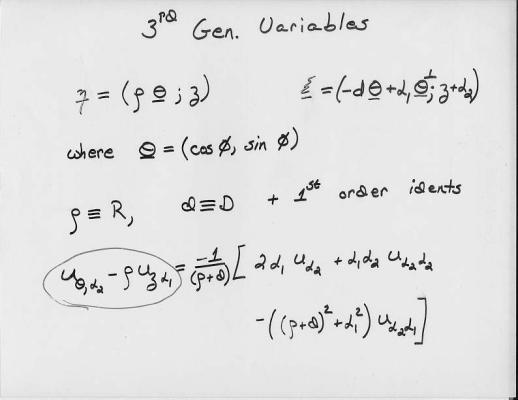 3RD Gen. Variables
η = (ρ θ ; z) ξ = (-dθ + α₁θ^⊥ ; z + α₂)
where θ = (cos ϕ, sin ϕ)
ρ ≡ R, d ≡ D + 1st order idents
u_{θ,α₂} - ρ u_{z α₁} = -1/(ρ+d) [ 2α₁ u_{α₂} + α₁α₂ u_{α₂α₂}
-((ρ+d)² + α₁²) u_{α₂α₁} ]